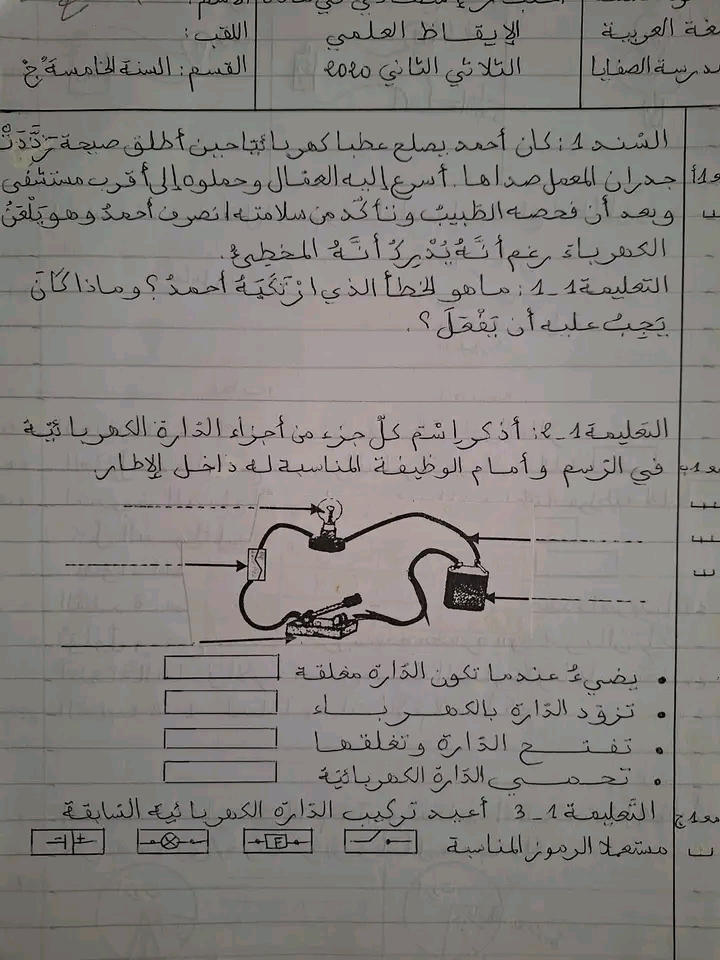 الإيقاظ العلمي
اللقب:
الثلاثي الثاني 2020
القسم: السنة الخامسة ج
السّند 1: كان أحمد يصلح عطبا كهربائيّا حين أطلق صيحة رَدَّدَتْ
جدران المعمل صداها. أسرع إليه العمّال وحملوه إلى أقرب مستشفى
وبعد أن فحصه الطّبيبُ وتأكّد من سلامته انصرف أحمدُ وهو يَلْعَنُ
الكهرباءَ رغم أنَّهُ يُدْرِكُ أنَّهُ المخطِئُ.
التعليمة 1_1: ماهو الخطأ الذي ارْتَكَبَهُ أحمدُ؟ وماذا كَانَ
يَجِبُ عليه أن يَفْعَلَ؟.
التعليمة 1_2: أذكر اِسْم كلّ جزء من أجزاء الدّارة الكهربائيّة
في الرّسم وأمام الوظيفة المناسبة له داخل الإطار
• يضيءُ عندما تكون الدّارة مغلقة
• تزوّد الدّارة بالكهرباء
• تفتح الدّارة وتغلقها
• تحمي الدّارة الكهربائيّة
التّعليمة 1_3 أعيد تركيب الدّارة الكهربائية السّابقة
مستعملا الرموز المناسبة